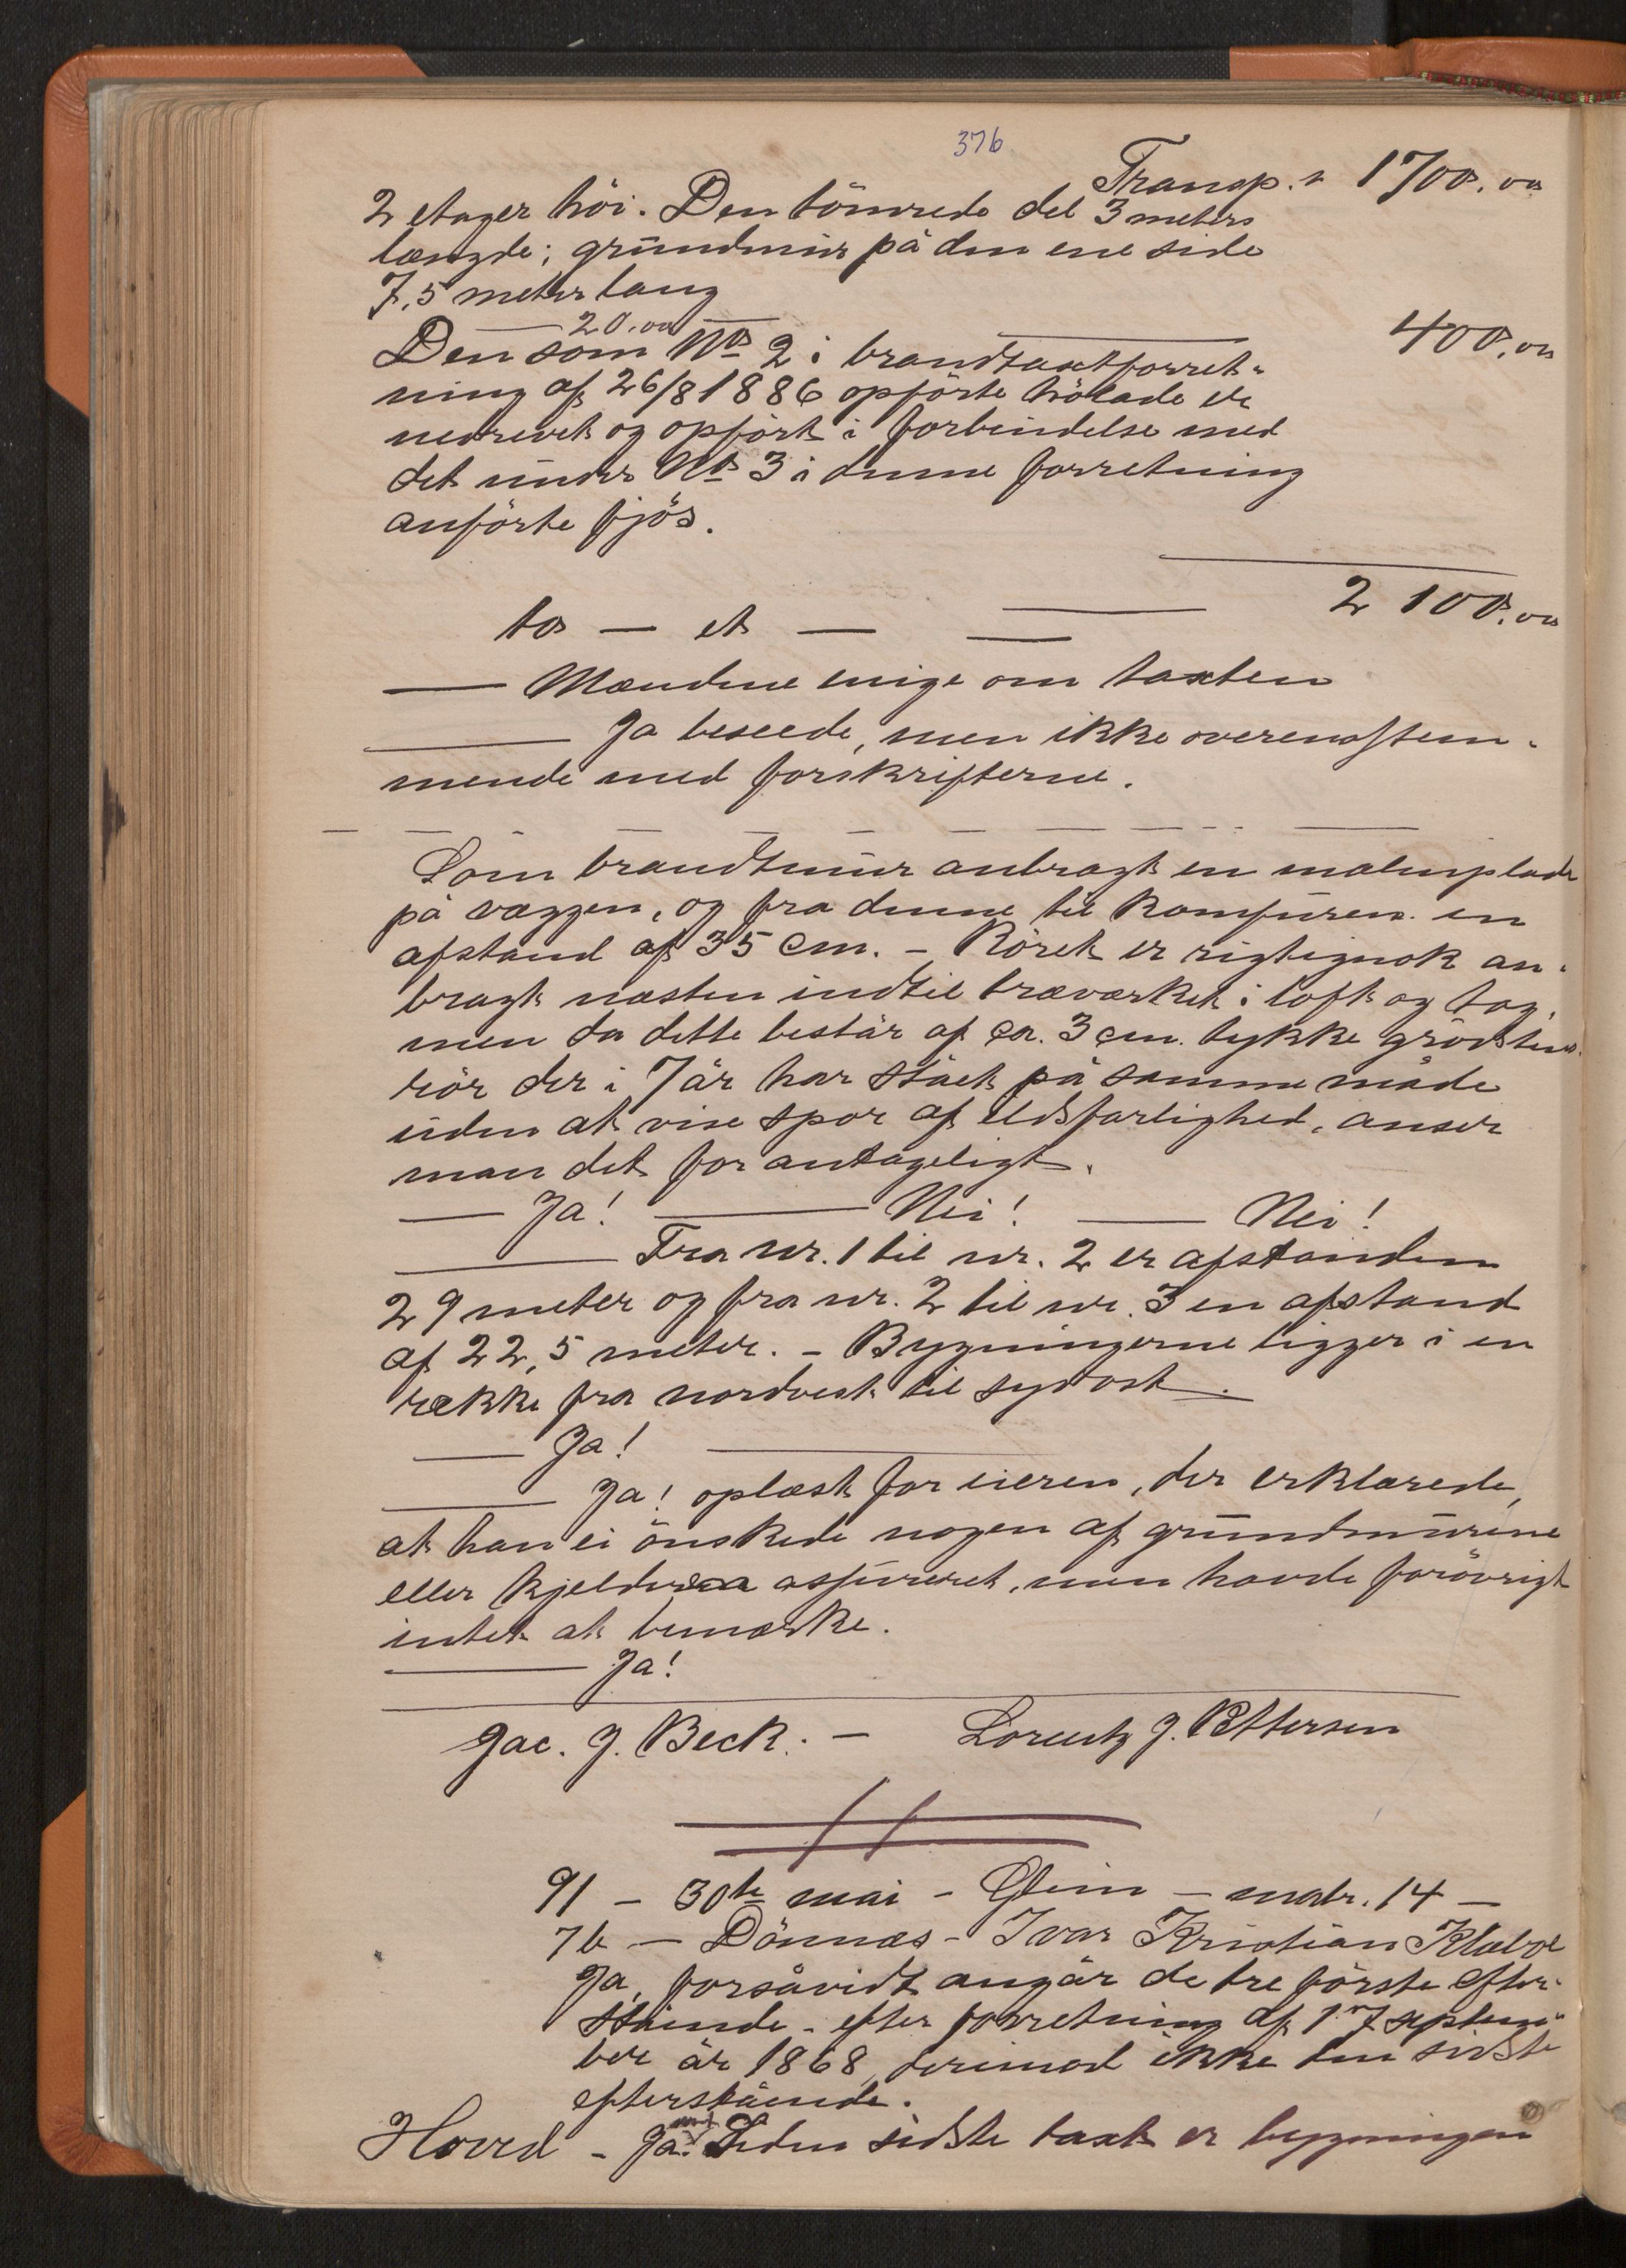 376.
Transp. r 1700.00
2 etager höi. Den tömrede del 3 meters
længde; grundmür på den ene side
7,5 meter lang
— 20.00 — — 400.00
Den som No 2 i brandtaxtforret-
ning af 26/8 1886 opförte hölade er
nedrevet og opfört i forbindelse med
det ünder No 3 i denne forretning
anförte fjös.
2 100.00
to — et — — —
— Mændene enige om taxten
— Ja beseede, men ikke overensstem-
mende med forskrifterne.
Som brandmür anbragt en malmplade
på væggen, og fra denne til komfüren en
afstand af 35 cm. - Röret er rigtignok an-
bragt næsten indtil træværket i loft og tag,
men da dette består af ca. 3 cm. tykke grödstens-
rör der i 7 år har stået på samme måde
üden at vise spor af ildsfarlighed, anser
man det for antageligt.
— Ja! — Nei! — Nei!
— Fra nr. 1 til nr. 2 er afstanden
29 meter og fra nr. 2 til nr. 3 en afstand
af 22,5 meter. - Bygningerne ligger i en
række fra nordvest til sydost.
— Ja! —
— Ja! oplæst for eieren, der erklærede,
at han ei önskede nogen af grundmürene
eller kjeldere assüreret, men havde forövrigt
intet at bemærke.
— Ja!
Jac. J. Beck. - Lorentz J. Pettersen
91 - 30te mai - Glein - matr. 14 -
7b - Dönnæs - Ivar Kristian Klæboe
Ja, forsåvidt angår de tre förste efter-
stående - efter forretning af 17 septem-
ber år 1868, derimod ikke den sidste
efterstående.
Hoved - Ja. Siden sidste taxt er bygningen